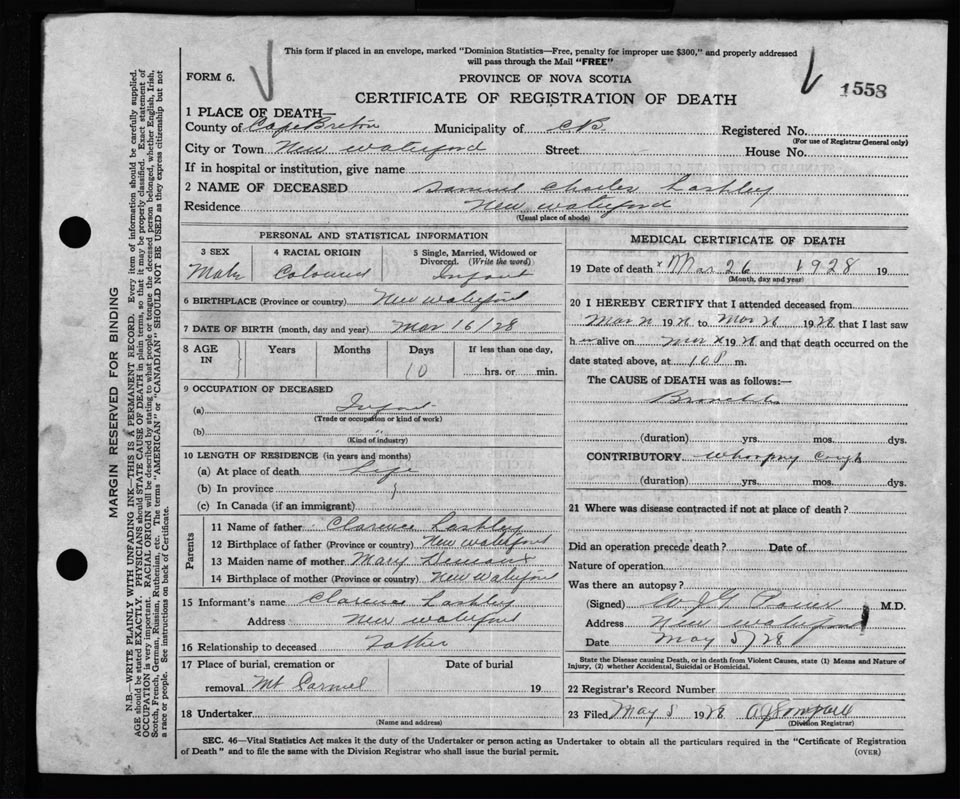 This form if placed in an envelope, marked "Dominion Statistics—Free, penalty for improper use $300," and properly addressed
will pass through the Mail "FREE"
FORM 6.
PROVINCE OF NOVA SCOTIA
1558
CERTIFICATE OF REGISTRATION OF DEATH
1 PLACE OF DEATH—
County of Cape Breton Municipality of CB Registered No.
(For use of Registrar General only)
City or Town New Waterford Street House No.
If in hospital or institution, give name
2 NAME OF DECEASED Samuel Charles Lashley
Residence New Waterford
(Usual place of abode)
PERSONAL AND STATISTICAL INFORMATION
3 SEX Male
4 RACIAL ORIGIN Coloured
5 Single, Married, Widowed or Divorced. (Write the word) Infant
6 BIRTHPLACE (Province or country) New Waterford
7 DATE OF BIRTH (month, day and year) Mar 16/28
8 AGE IN Years Months Days 10 If less than one day, hrs. or min.
9 OCCUPATION OF DECEASED
(a) Infant
(Trade or occupation or kind of work)
(b)
(Kind of industry)
10 LENGTH OF RESIDENCE (in years and months)
(a) At place of death Life
(b) In province
(c) In Canada (if an immigrant)
Parents
11 Name of father Clarence Lashley
12 Birthplace of father (Province or country) New Waterford
13 Maiden name of mother Mary
14 Birthplace of mother (Province or country) New Waterford
15 Informant's name Clarence Lashley
Address New Waterford
16 Relationship to deceased Father
17 Place of burial, cremation or Date of burial
removal Mt Carmel 19
18 Undertaker
(Name and address)
MEDICAL CERTIFICATE OF DEATH
19 Date of death x Mar 26 1928 19
(Month, day and year)
20 I HEREBY CERTIFY that I attended deceased from
Mar 19 to Mar 1928 that I last saw
h alive on Mar 19 and that death occurred on the
date stated above, at 10 P m.
The CAUSE of DEATH was as follows:—
(duration) yrs. mos. dys.
CONTRIBUTORY Whooping Cough
(duration) yrs. mos. dys.
21 Where was disease contracted if not at place of death?
Did an operation precede death? Date of
Nature of operation
Was there an autopsy?
(Signed) M.D.
Address New Waterford
Date May 5/28
State the Disease causing Death, or in death from Violent Causes, state (1) Means and Nature of
Injury, (2) whether Accidental, Suicidal or Homicidal.
22 Registrar's Record Number
23 Filed May 5 1928
(Division Registrar)
SEC. 46—Vital Statistics Act makes it the duty of the Undertaker or person acting as Undertaker to obtain all the particulars required in the "Certificate of Registration
of Death" and to file the same with the Division Registrar who shall issue the burial permit.
(OVER)
MARGIN RESERVED FOR BINDING
N.B.—WRITE PLAINLY WITH UNFADING INK—THIS IS A PERMANENT RECORD. Every item of information should be carefully supplied.
AGE should be stated EXACTLY. PHYSICIANS should STATE CAUSE OF DEATH in plain terms, so that it may be properly classified. Exact statement of
OCCUPATION is very important. RACIAL ORIGIN will be described by stating to what people or tongue the deceased person belonged, whether English, Irish,
Scotch, French, German, Russian, Ruthenian, etc. The terms "AMERICAN" or "CANADIAN" SHOULD NOT BE USED as they express citizenship but not
a race or people. See instructions on back of Certificate.